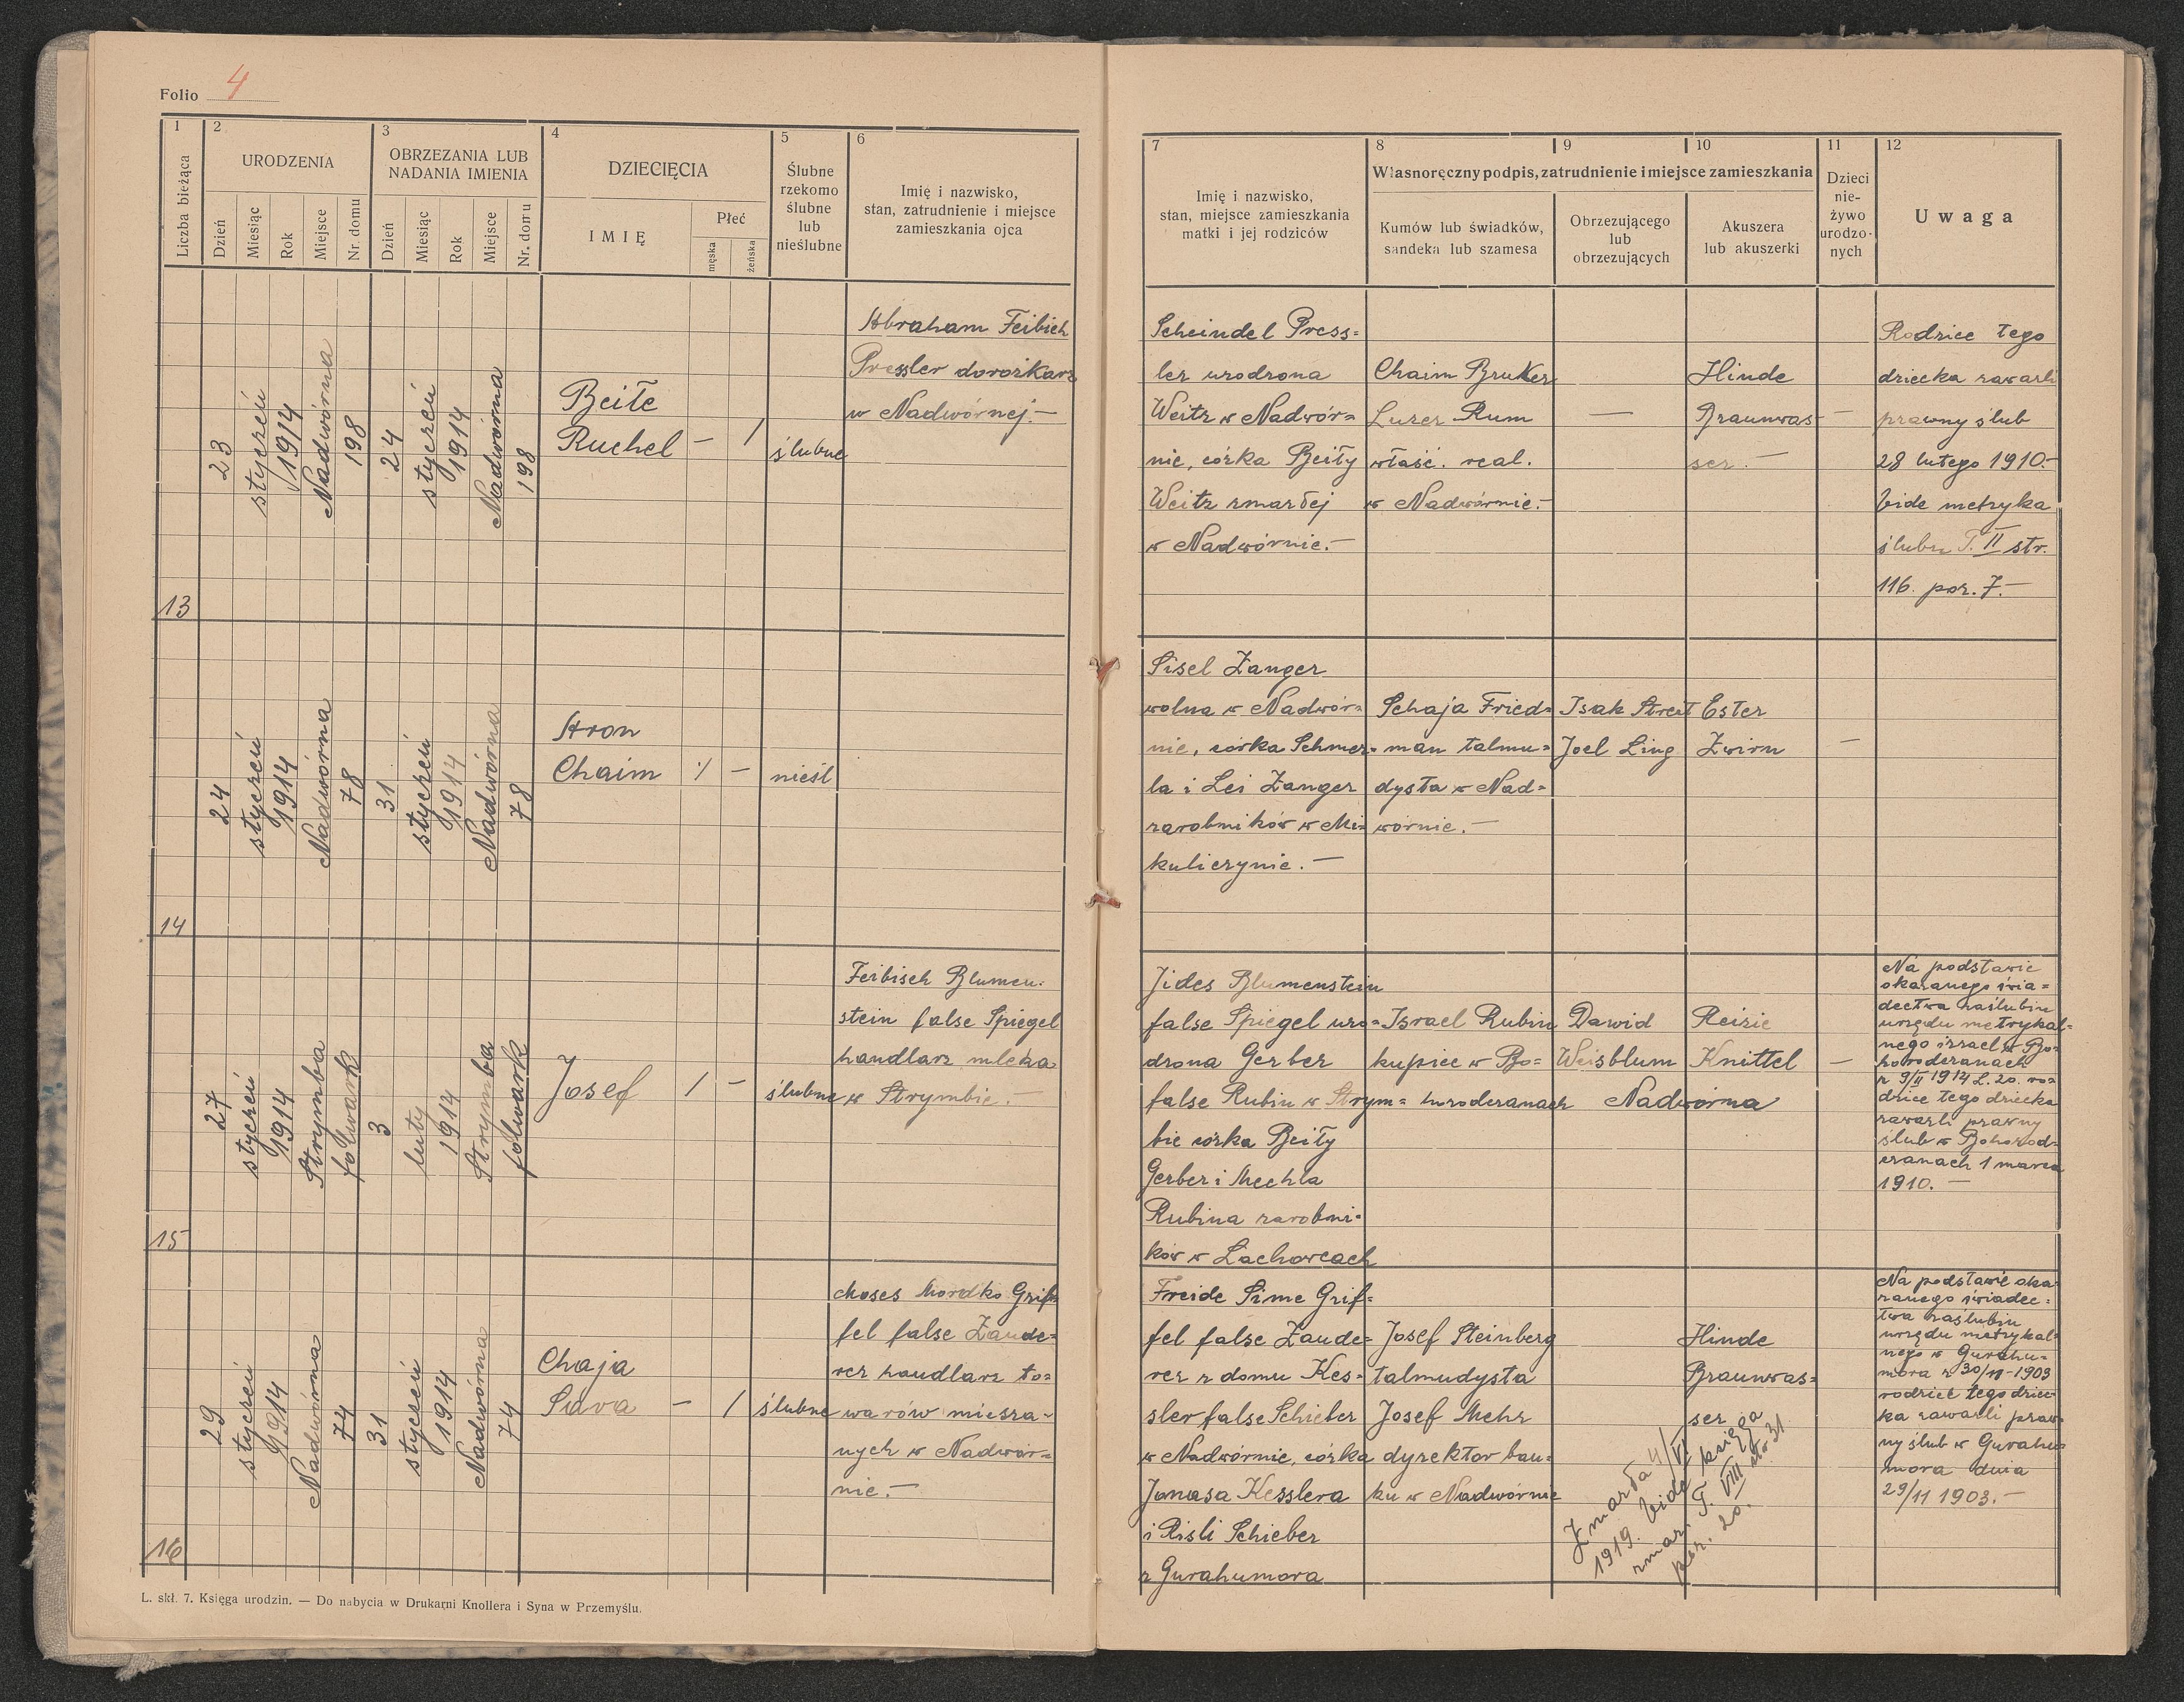 Folio 4
1
2
3
4
5
6
Liczba bieżąca
URODZENIA
OBRZEZANIA LUB
NADANIA IMIENIA
DZIECIĘCIA
Ślubne
rzekomo
ślubne
lub
nieślubne
Imię i nazwisko,
stan, zatrudnienie i miejsce
zamieszkania ojca
Dzień
Miesiąc
Rok
Miejsce
Nr. domu
Dzień
Miesiąc
Rok
Miejsce
Nr. domu
IMIĘ
Płeć
męska
żeńska
7
8
9
10
11
12
Imię i nazwisko,
stan, miejsce zamieszkania
matki i jej rodziców
Własnoręczny podpis, zatrudnienie i miejsce zamieszkania
Kumów lub świadków,
sandeka lub szamesa
Obrzezującego
lub
obrzezujących
Akuszera
lub akuszerki
Dzieci
nie-
żywo
urodzo-
nych
Uwaga
13
23
styczeń
1914
Nadwórna
198
24
styczeń
1914
Nadwórna
198
Beile
Ruchel
—
/
ślubne
Abraham Feibish
Pressler dorożkarz
w Nadwórnej.—
Scheindel Press=
ler urodzona
Weitz w Nadwór=
nie, córka Beiły
Weitz zmarłej
w Nadwórnie.—
Chaim Bruker
Luzer Rum
właść. real.
w Nadwórnie.—
—
Hinde
Braunwas-
ser.—
—
Rodzice tego
dziecka zawarli
prawny ślub
28 lutego 1910.—
Vide metryka
ślubu T. II str.
116. poz. 7.—
14
24
styczeń
1914
Nadwórna
78
31
styczeń
1914
Nadwórna
78
Aron
Chaim
/
—
nieśl
Sisel Zanger
wolna w Nadwór=
nie, córka Schmer=
la i Lei Zanger
zarobników w Mi=
kuliczynie.—
Schaja Fried=
man talmu=
dysta w Nad=
wórnie.—
Isak Streit
Joel Ling
Ester
Zwirn
—
15
27
styczeń
1914
Strymba
folwark
3
luty
1914
Strymba
folwark
Josef
/
—
ślubne
Feibisch Blumen-
stein false Spiegel
handlarz mleka
w Strymbie.—
Jides Blumenstein
false Spiegel uro=
dzona Gerber
false Rubin w Strym=
bie córka Beiły
Gerber i Mechla
Rubina zarobni=
ków w Lachowcach
Israel Rubin
kupiec w Bo=
horodczanach
Dawid
Weisblum
Reizie
Knittel
Nadwórna
—
Na podstawie
okazanego świa=
dectwa zaślubin
urzędu metrykal=
nego izrael. w Bo=
horodczanach
z 9/II 1914 L. 20. ro=
dzice tego dziecka
zawarli prawny
ślub w Bohorod=
czanach 1 marca
1910.—
16
29
styczeń
1914
Nadwórna
74
31
styczeń
1914
Nadwórna
74
Chaja
Sara
—
/
ślubne
Moses Mordko Grif=
fel false Zaude=
rer handlarz to=
warów miesza-
nych w Nadwór=
nie.—
Freide Sime Grif=
fel false Zaude=
rer z domu Kes=
sler false Schieber
w Nadwórnie, córka
Jonasa Kesslera
i Risli Schieber
z Gurahumora
Josef Steinberg
talmudysta
Josef Mehr
dyrektor ban=
ku w Nadwórnie
Hinde
Braunwas=
ser
Zmarła 4/VI
1919. Vide księga
zmar. T. VIII str 31
poz. 20.
Na podstawie oka=
zanego świadec=
twa zaślubin
urzędu metrykal=
nego w Gurahu=
mora z 30/11-1903
rodzice tego dziec=
ka zawarli praw=
ny ślub w Gurahu=
mora dnia
29/11 1903.—
L. skł. 7. Księga urodzin. — Do nabycia w Drukarni Knollera i Syna w Przemyślu.